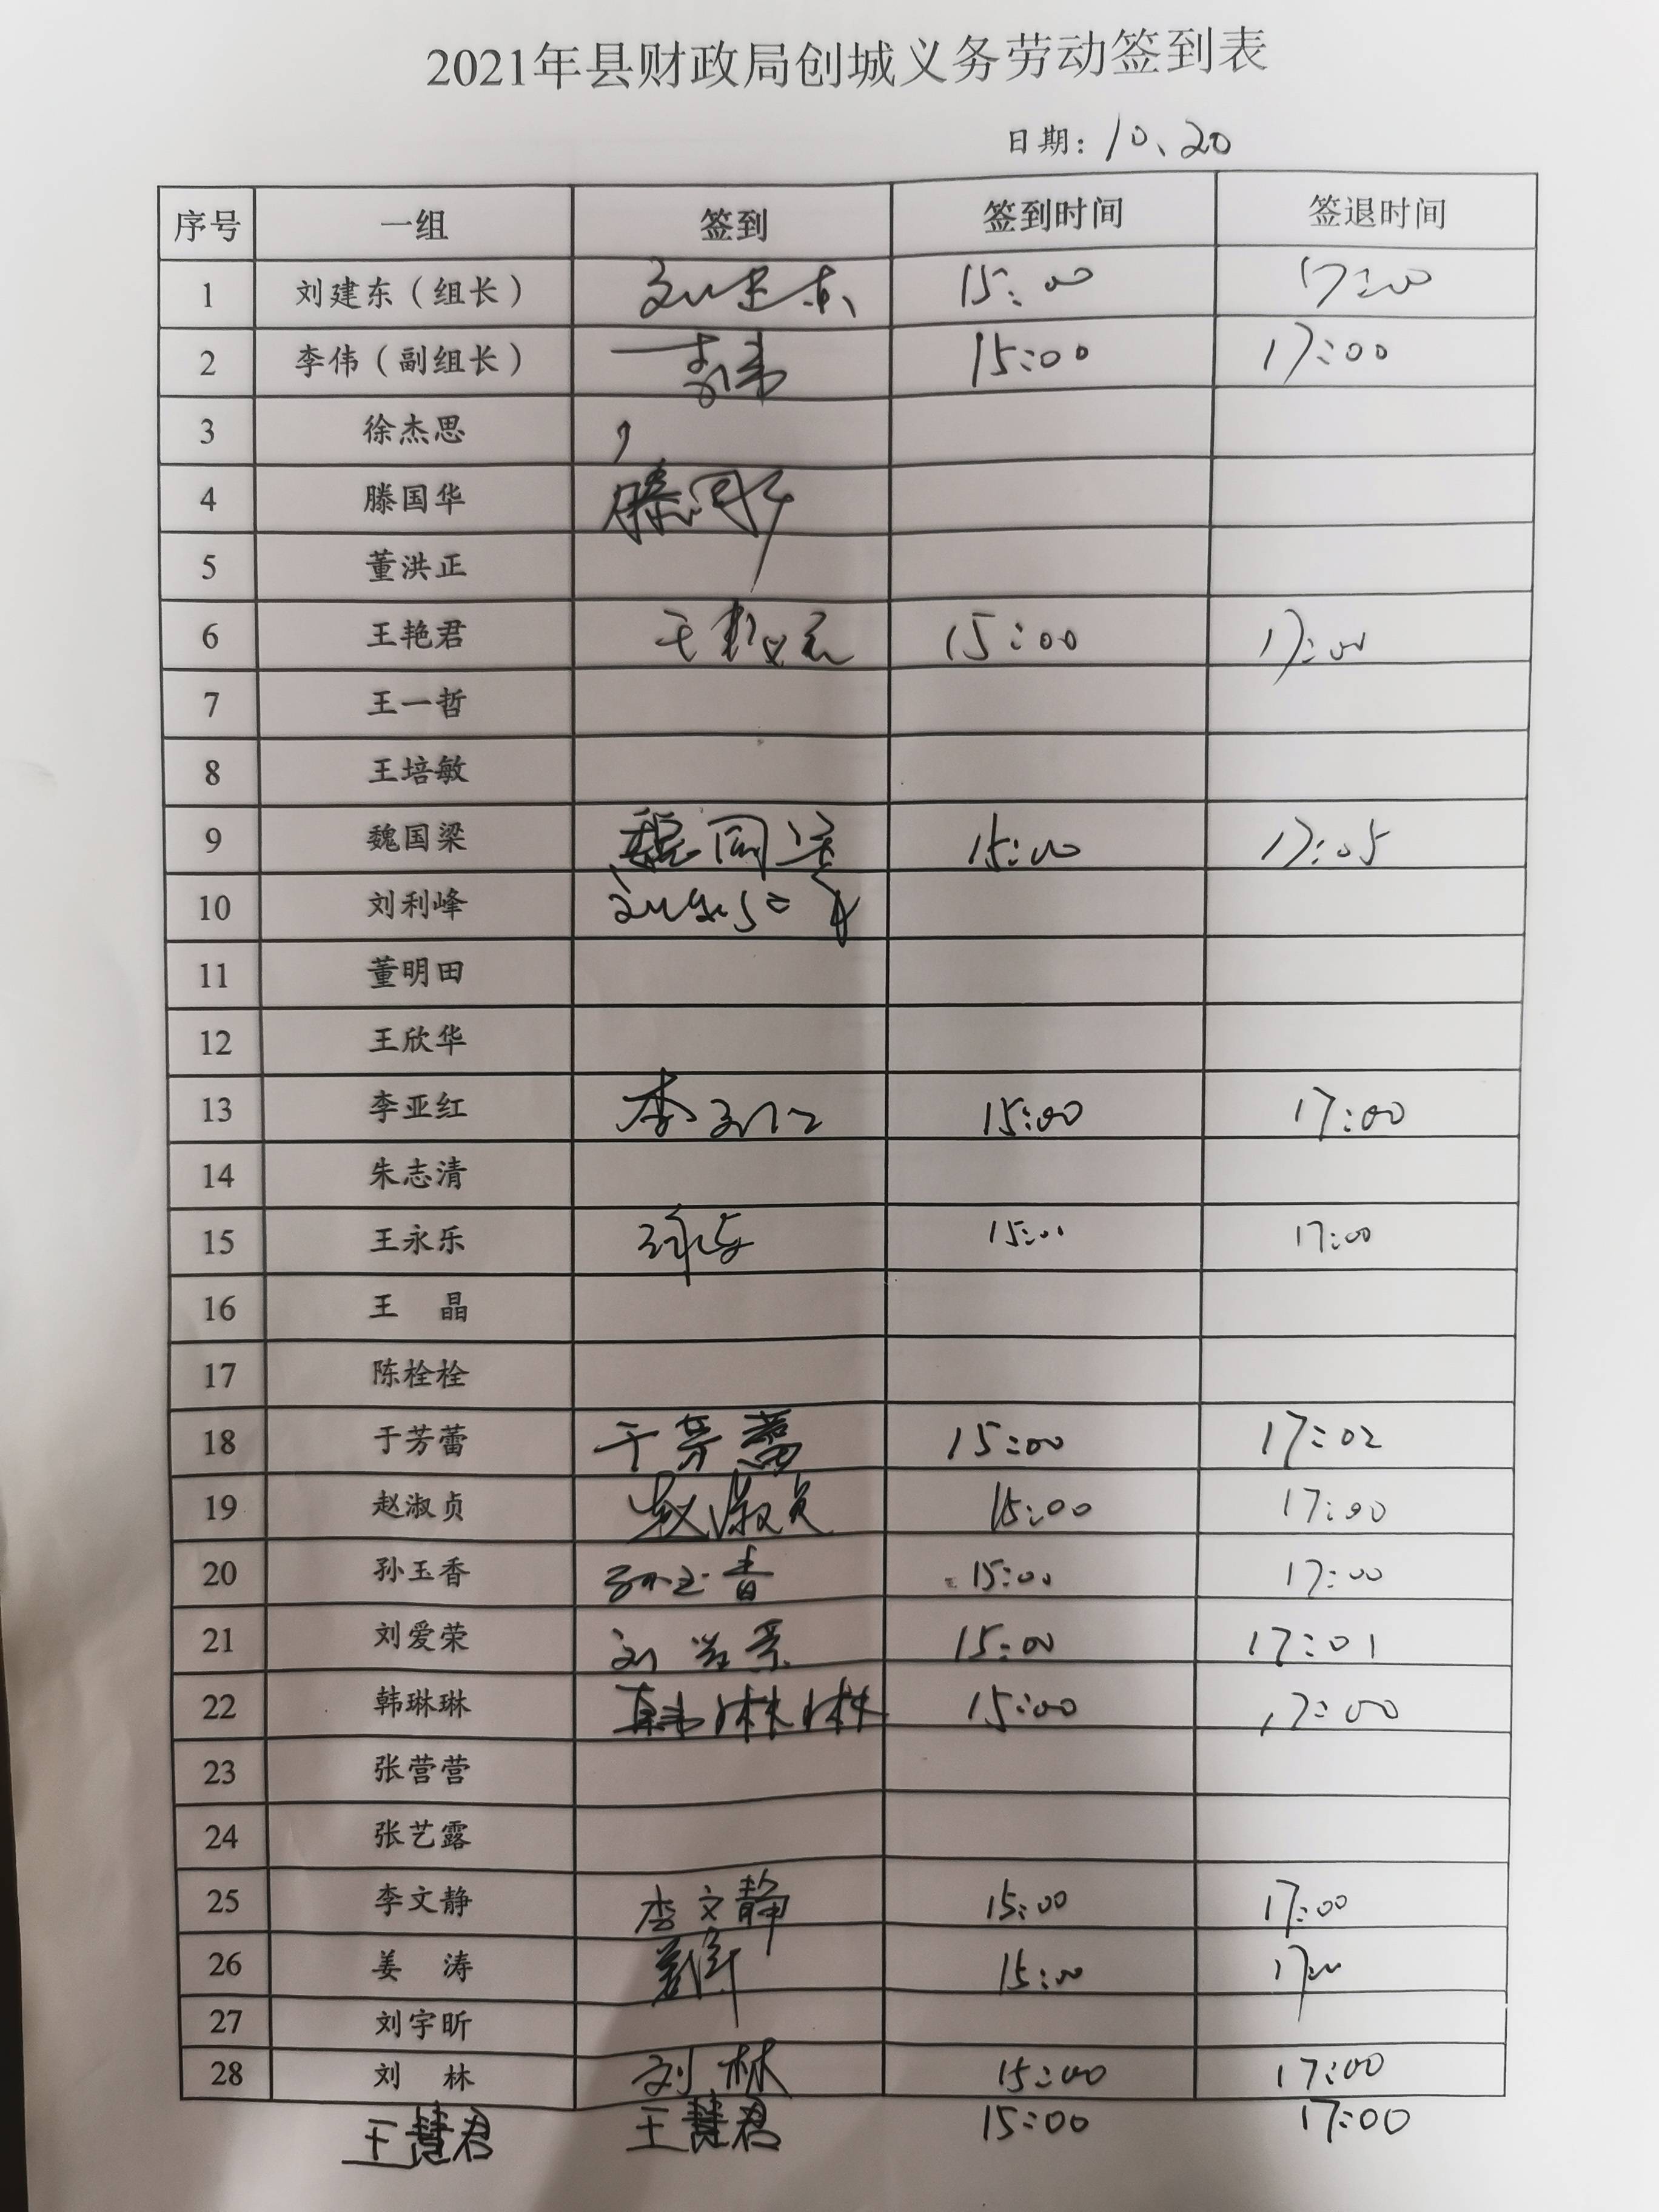 2021年县财政局创城义务劳动签到表
日期：10、20
序号 一组 签到 签到时间 签退时间
1 刘建东（组长） 刘建东 15:00 17:00
2 李伟（副组长） 李伟 15:00 17:00
3 徐杰思
4 滕国华 滕国华
5 董洪正
6 王艳君 王艳君 15:00 17:00
7 王一哲
8 王培敏
9 魏国梁 魏国梁 15:00 17:05
10 刘利峰
11 董明田
12 王欣华
13 李亚红 李亚红 15:00 17:00
14 朱志清
15 王永乐 王永乐 15:00 17:00
16 王 晶
17 陈栓栓
18 于芳蕾 于芳蕾 15:00 17:02
19 赵淑贞 赵淑贞 15:00 17:00
20 孙玉香 孙玉香 15:00 17:00
21 刘爱荣 刘爱荣 15:00 17:01
22 韩琳琳 韩琳琳 15:00 17:00
23 张营营
24 张艺露
25 李文静 李文静 15:00 17:00
26 姜 涛 姜涛 15:00 17:00
27 刘宇昕
28 刘 林 刘林 15:00 17:00
王慧君 王慧君 15:00 17:00